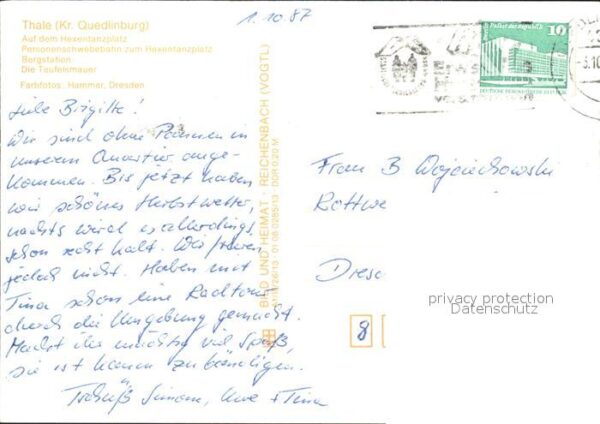 Thale (Kr. Quedlinburg)
Auf dem Hexentanzplatz
Personenschwebebahn zum Hexentanzplatz
Bergstation
Die Teufelsmauer
Farbfotos: Hammer, Dresden
1.10 87
Liebe Brigitte!
Wir sind ohne Pannen in
unserem Quartier ange-
kommen. Bis jetzt haben
wir schönes Herbstwetter,
nachts wird es allerdings
schon recht kalt. Wir frieren
jedoch nicht. Haben mit
Tina schon eine Radtour
durch die Umgebung gemacht.
Macht ihr mächtig viel Spaß,
sie ist kaum zu bändigen.
Tschüß Simone, Uwe + Tina
BILD UND HEIMAT · REICHENBACH (VOGTL)
01 08 0285/13 DDR 0,20 M
Palast der Republik
10
DEUTSCHE DEMOKRATISCHE REPUBLIK
Frau B Wojciechowski
Rottwe
Dresd
8
privacy protection
Datenschutz